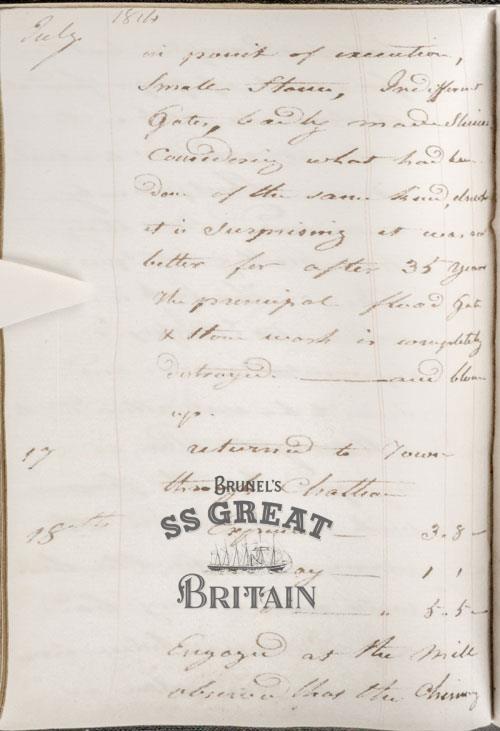 July 1814
in point of execution,
Small Stones, Indifferent
Gates, badly made Sluices
Considering what had been
done of the same kind,
it is surprising it was no
better for after 35 years
the principal flood Gate
& Stone work is completely
destroyed. and blown
up.
17 returned to Town
through Chatham
18 Expenses 3.8
1 1
5.5
Engaged at the Mill
observed that the Chimney
BRUNEL'S
SS GREAT
BRITAIN